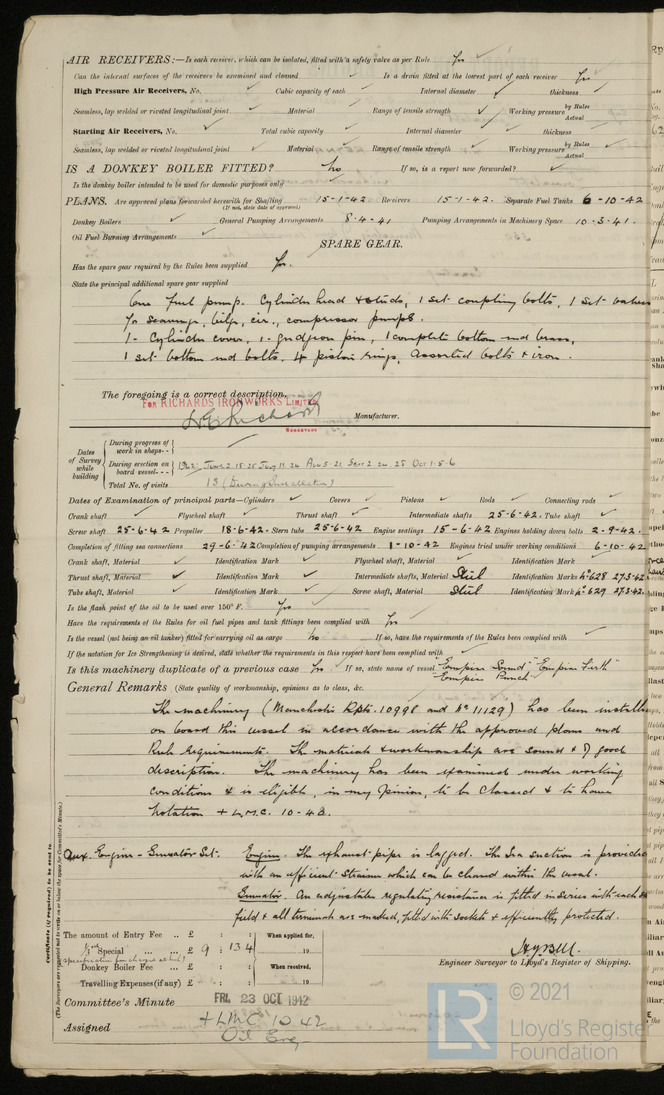 AIR RECEIVERS:—Is each receiver, which can be isolated, fitted with a safety valve as per Rule Yes
Can the internal surfaces of the receivers be examined and cleaned Is a drain fitted at the lowest part of each receiver Yes
High Pressure Air Receivers, No. Cubic capacity of each Internal diameter thickness
Seamless, lap welded or riveted longitudinal joint Material Range of tensile strength Working pressure by Rules Actual
Starting Air Receivers, No. Total cubic capacity Internal diameter thickness
Seamless, lap welded or riveted longitudinal joint Material Range of tensile strength Working pressure by Rules Actual
IS A DONKEY BOILER FITTED? No If so, is a report now forwarded?
Is the donkey boiler intended to be used for domestic purposes only
PLANS. Are approved plans forwarded herewith for Shafting 15-1-42. Receivers 15-1-42. Separate Fuel Tanks 6-10-42
(If not, state date of approval)
Donkey Boilers General Pumping Arrangements 8-4-41 Pumping Arrangements in Machinery Space 10-3-41.
Oil Fuel Burning Arrangements
SPARE GEAR.
Has the spare gear required by the Rules been supplied Yes.
State the principal additional spare gear supplied
One fuel pump. Cylinder head & studs, 1 set coupling bolts, 1 set valves
for scavenge, bilge, cir., compressor pumps.
1- Cylinder cover, 1- gudgeon pin, 1 complete bottom end brass,
1 set bottom end bolts, 4 piston rings, Assorted bolts & iron.
The foregoing is a correct description,
FOR RICHARDS IRONWORKS LIMITED
Manufacturer.
Dates of Survey while building
During progress of work in shops--
During erection on board vessel--- 1942: June 2.15.25 July 11.24 Aug 3.21 Sept 2.24.25 Oct 1.5.6
Total No. of visits 13 (During Installation)
Dates of Examination of principal parts—Cylinders Covers Pistons Rods Connecting rods
Crank shaft Flywheel shaft Thrust shaft Intermediate shafts 25-6-42. Tube shaft
Screw shaft 25-6-42 Propeller 18-6-42. Stern tube 25-6-42 Engine seatings 15-6-42 Engines holding down bolts 2-9-42.
Completion of fitting sea connections 29-6-42 Completion of pumping arrangements 1-10-42 Engines tried under working conditions 6-10-42
Crank shaft, Material Identification Mark Flywheel shaft, Material Identification Mark
Thrust shaft, Material Identification Mark Intermediate shafts, Material Steel Identification Marks No 628 27.3.42.
Tube shaft, Material Identification Mark Screw shaft, Material Steel Identification Mark No 629 27.3.42.
Is the flash point of the oil to be used over 150° F. Yes
Have the requirements of the Rules for oil fuel pipes and tank fittings been complied with Yes
Is the vessel (not being an oil tanker) fitted for carrying oil as cargo No If so, have the requirements of the Rules been complied with
If the notation for Ice Strengthening is desired, state whether the requirements in this respect have been complied with
Is this machinery duplicate of a previous case Yes If so, state name of vessel "Empire Sound" "Empire Firth"
"Empire Punch"
General Remarks (State quality of workmanship, opinions as to class, &c.
The machinery (Manchester Rpts. 10998 and No 11129) has been installed
on board this vessel in accordance with the approved plans and
Rule requirements. The materials & workmanship are sound & of good
description. The machinery has been examined under working
conditions & is eligible, in my opinion, to be Classed & to have
Notation + L.M.C. 10-42.
Aux. Engine - Generator Set. Engine. The exhaust pipe is lagged. The Sea suction is provided
with an efficient strainer which can be cleaned within the vessel.
Generator. An adjustable regulating resistance is fitted in series with each
field & all terminals are marked, fitted with sockets & efficiently protected.
Certificate (if required) to be sent to
(The Surveyors are requested not to write on or below the space for Committee's Minute.)
The amount of Entry Fee .. £ : : When applied for,
Special ... ... £ 9 : 13 4 19
Donkey Boiler Fee ... £ : : When received,
Travelling Expenses (if any) £ : : 19
Engineer Surveyor to Lloyd's Register of Shipping.
Committee's Minute FRI. 23 OCT 1942
Assigned + LMC 10 42
Oil Eng
LR
© 2021
Lloyd's Register
Foundation